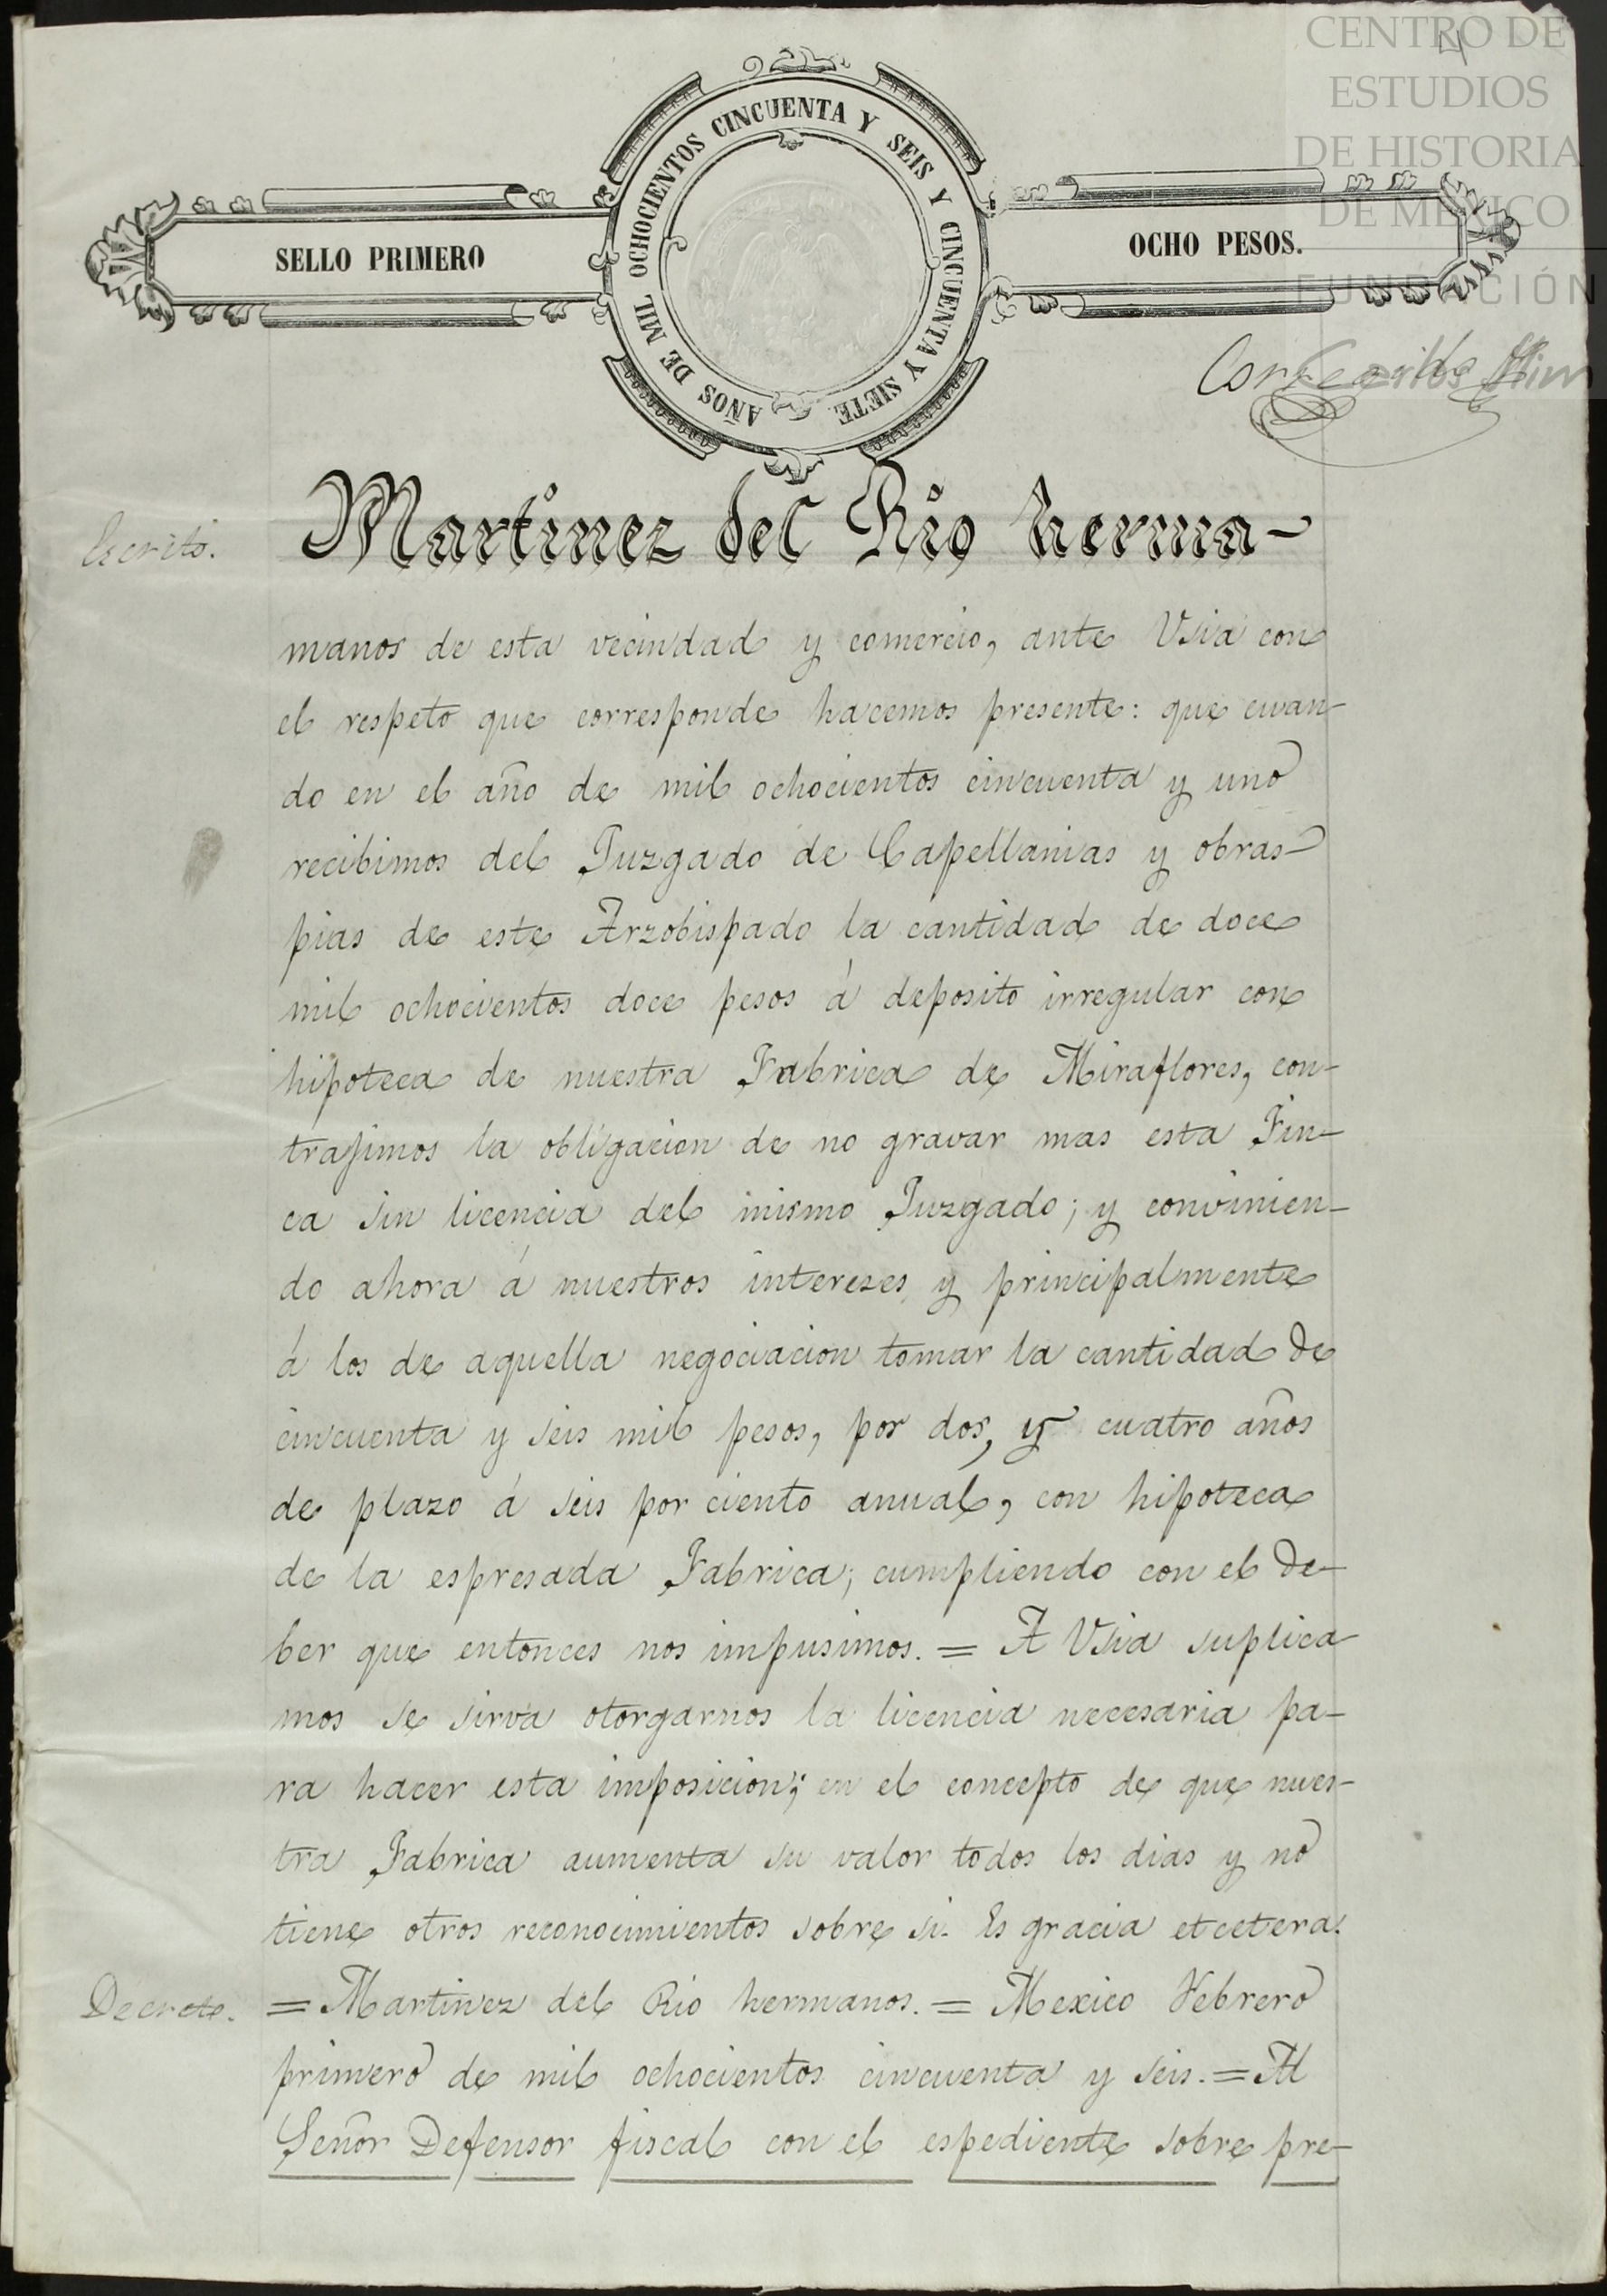 CENTRO DE
ESTUDIOS
DE HISTORIA
DE MÉXICO
FUNDACIÓN
AÑOS DE MIL OCHOCIENTOS CINCUENTA Y SEIS Y CINCUENTA Y SIETE.
SELLO PRIMERO
OCHO PESOS.
Escrito.
Martinez del Rio herma-
manos de esta vecindad y comercio, ante Vsia con
el respeto que corresponde hacemos presente: que cuan-
do en el año de mil ochocientos cincuenta y uno
recibimos del Juzgado de Capellanias y obras-
pias de este Arzobispado la cantidad de doce
mil ochocientos doce pesos á deposito irregular con
hipoteca de nuestra Fabrica de Miraflores, con-
trajimos la obligacion de no gravar mas esta Fin-
ca sin licencia del mismo Juzgado; y convinien-
do ahora á nuestros intereses y principalmente
á los de aquella negociacion tomar la cantidad de
cincuenta y seis mil pesos, por dos, y cuatro años
de plazo á seis por ciento anual, con hipoteca
de la espresada Fabrica; cumpliendo con el de-
ber que entonces nos impusimos. = A Vsia suplica
mos se sirva otorgarnos la licencia necesaria pa-
ra hacer esta imposicion; en el concepto de que nues-
tra Fabrica aumenta su valor todos los dias y no
tiene otros reconocimientos sobre si. Es gracia etcetera.
Decreto.
= Martinez del Rio hermanos. = Mexico Febrero
primero de mil ochocientos cincuenta y seis. = Al
Señor Defensor fiscal con el espediente sobre pre-